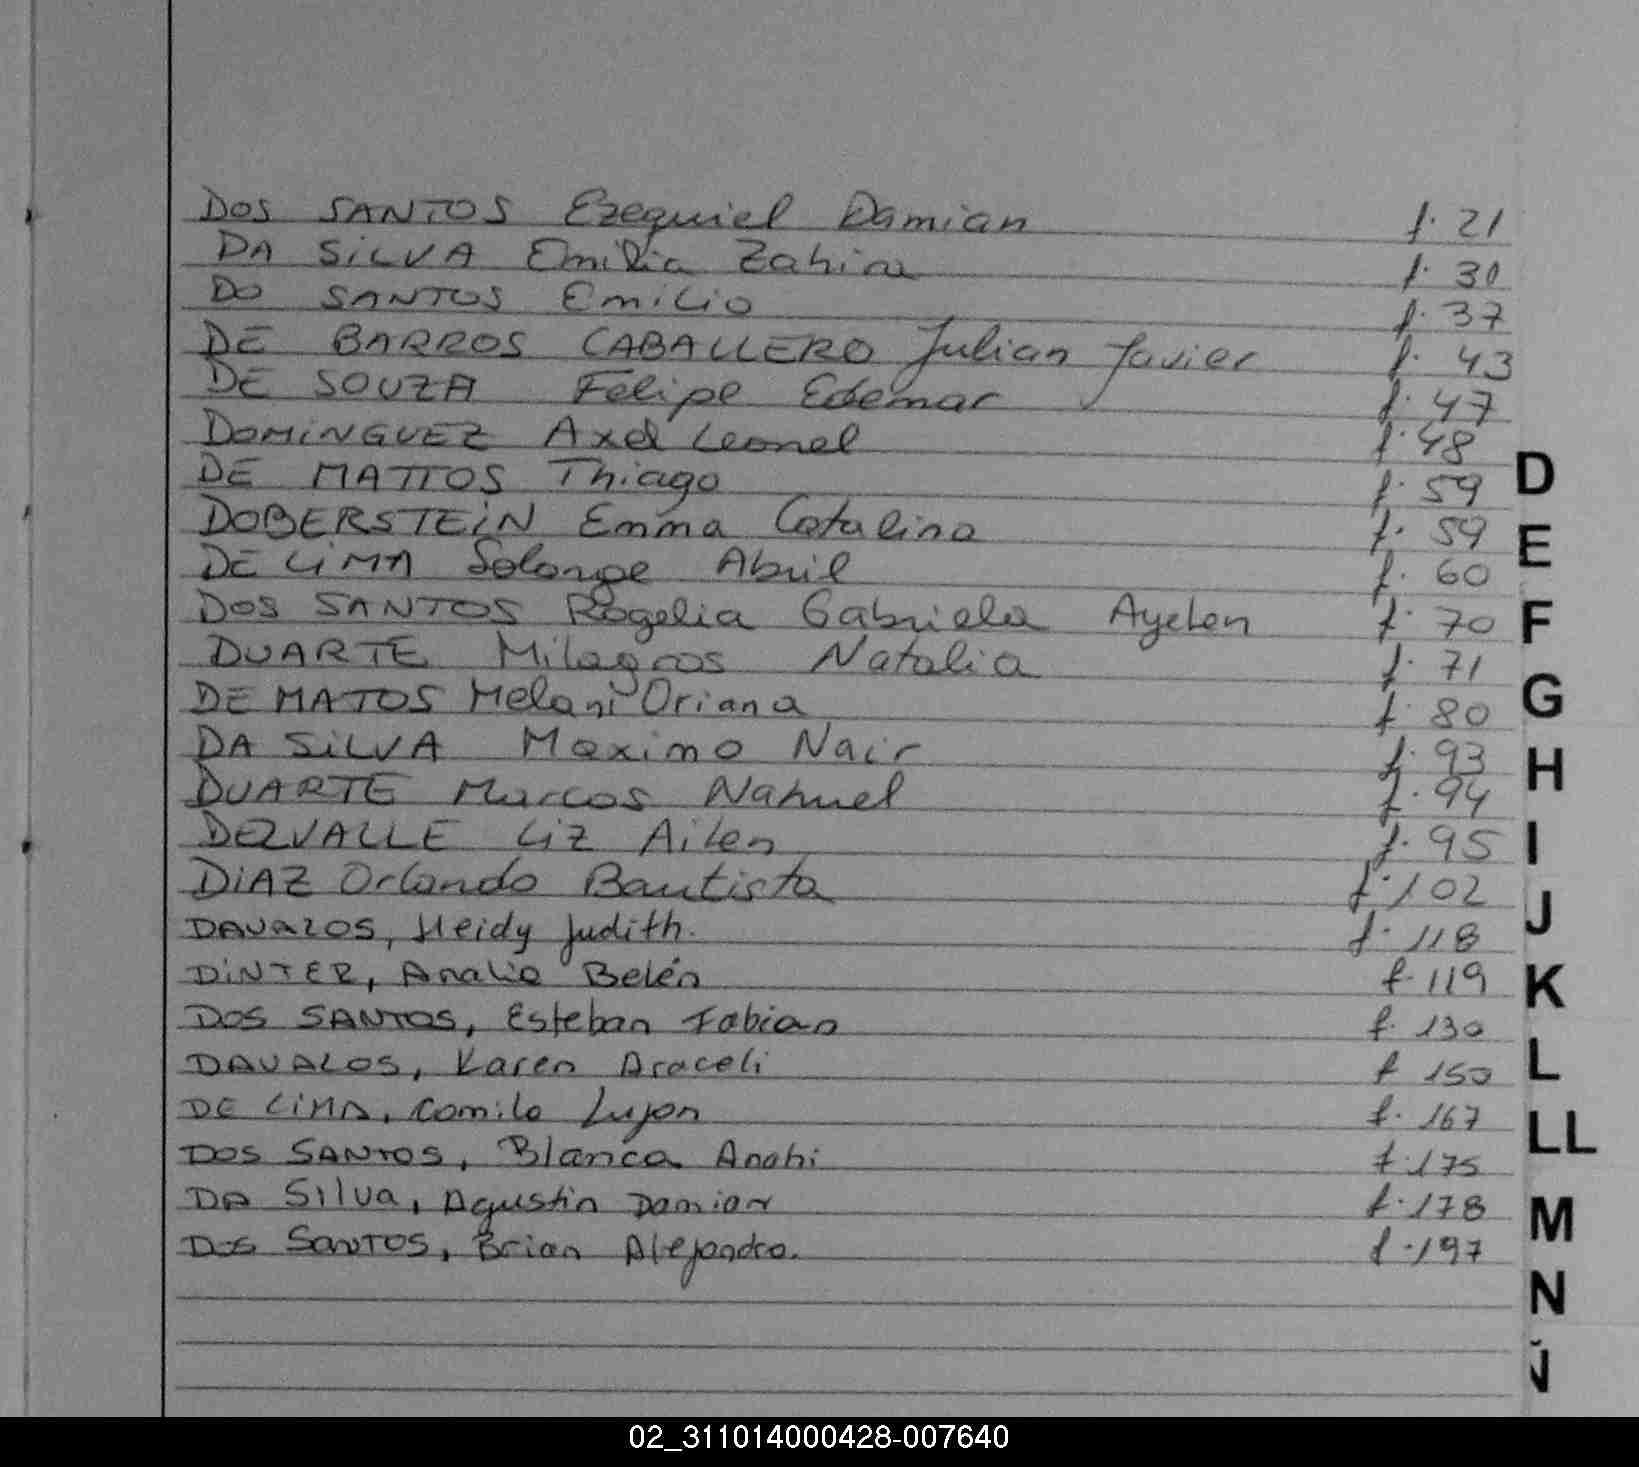 DOS SANTOS Ezequiel Damian f. 21
DA SILVA Emilia Zahira f. 30
DO SANTOS Emilio f. 37
DE BARROS CABALLERO Julian Javier f. 43
DE SOUZA Felipe Edemar f. 47
DOMINGUEZ Axel Leonel f. 48
DE MATTOS Thiago f. 59
DOBERSTEIN Emma Catalina f. 59
DE LIMA Solange Abril f. 60
DOS SANTOS Rogelia Gabriela Ayelen f. 70
DUARTE Milagros Natalia f. 71
DE MATOS Melani Oriana f. 80
DA SILVA Maximo Nair f. 93
DUARTE Marcos Nahuel f. 94
DELVALLE Liz Ailen f. 95
DIAZ Orlando Bautista f. 102
DAVALOS, Heidy Judith. f. 118
DINTER, Analia Belén f. 119
DOS SANTOS, Esteban Fabian f. 130
DAVALOS, Karen Araceli f 150
DE LIMA, Camila Lujan f. 167
DOS SANTOS, Blanca Anahi f. 175
DA SILVA, Agustin Damian f. 178
DOS SANTOS, Brian Alejandro. f. 197
D
E
F
G
H
I
J
K
L
LL
M
N
02_311014000428-007640